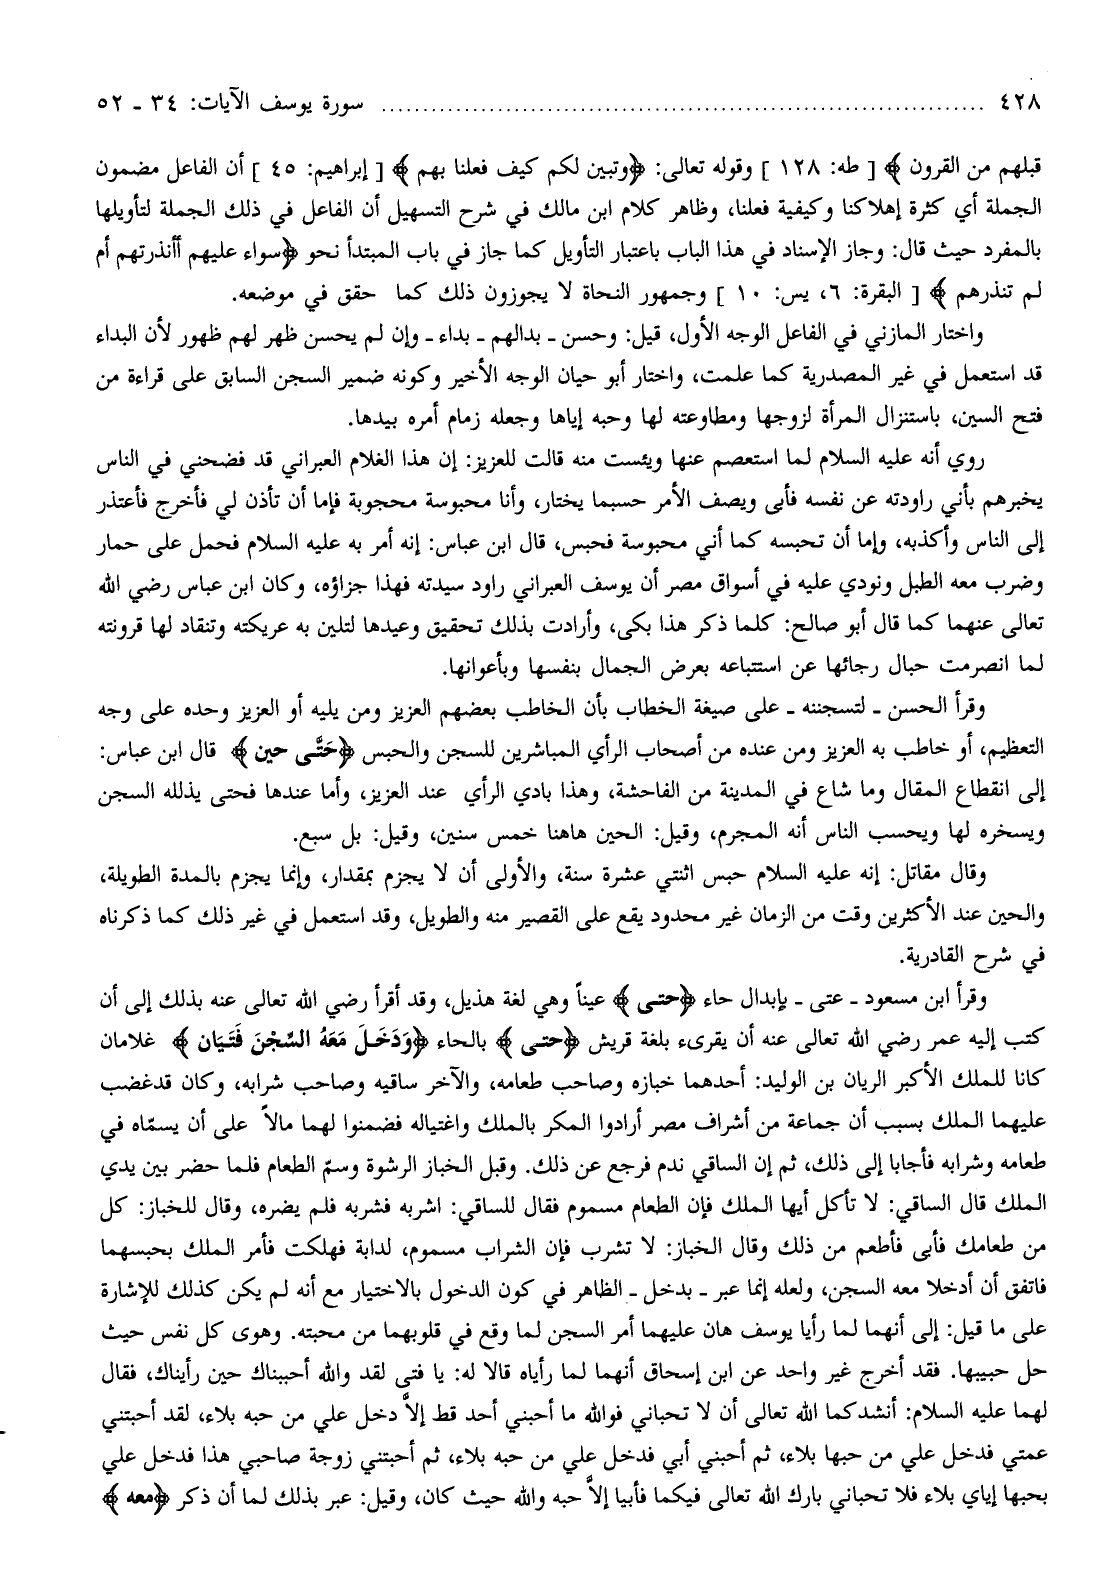 ٤٢٨ ........................................................................ سورة يوسف الآيات: ٣٤ ـ ٥٢
قبلهم من القرون ﴾ [ طه: ١٢٨ ] وقوله تعالى: ﴿وتبين لكم كيف فعلنا بهم ﴾ [ إبراهيم: ٤٥ ] أن الفاعل مضمون
الجملة أي كثرة إهلاكنا وكيفية فعلنا، وظاهر كلام ابن مالك في شرح التسهيل أن الفاعل في ذلك الجملة لتأويلها
بالمفرد حيث قال: وجاز الإسناد في هذا الباب باعتبار التأويل كما جاز في باب المبتدأ نحو ﴿سواء عليهم أأنذرتهم أم
لم تنذرهم ﴾ [ البقرة: ٦، يس: ١٠ ] وجمهور النحاة لا يجوزون ذلك كما حقق في موضعه.
واختار المازني في الفاعل الوجه الأول، قيل: وحسن ـ بدالهم ـ بداء ـ وإن لم يحسن ظهر لهم ظهور لأن البداء
قد استعمل في غير المصدرية كما علمت، واختار أبو حيان الوجه الأخير وكونه ضمير السجن السابق على قراءة من
فتح السين، باستنزال المرأة لزوجها ومطاوعته لها وحبه إياها وجعله زمام أمره بيدها.
روي أنه عليه السلام لما استعصم عنها ويئست منه قالت للعزيز: إن هذا الغلام العبراني قد فضحني في الناس
يخبرهم بأني راودته عن نفسه فأبى ويصف الأمر حسبما يختار، وأنا محبوسة محجوبة فإما أن تأذن لي فأخرج فأعتذر
إلى الناس وأكذبه، وإما أن تحبسه كما أني محبوسة فحبس، قال ابن عباس: إنه أمر به عليه السلام فحمل على حمار
وضرب معه الطبل ونودي عليه في أسواق مصر أن يوسف العبراني راود سيدته فهذا جزاؤه، وكان ابن عباس رضي الله
تعالى عنهما كما قال أبو صالح: كلما ذكر هذا بكى، وأرادت بذلك تحقيق وعيدها لتلين به عريكته وتنقاد لها قرونته
لما انصرمت حبال رجائها عن استتباعه بعرض الجمال بنفسها وبأعوانها.
وقرأ الحسن ـ لتسجننه ـ على صيغة الخطاب بأن الخاطب بعضهم العزيز ومن يليه أو العزيز وحده على وجه
التعظيم، أو خاطب به العزيز ومن عنده من أصحاب الرأي المباشرين للسجن والحبس ﴿حَتَّى حين ﴾ قال ابن عباس:
إلى انقطاع المقال وما شاع في المدينة من الفاحشة، وهذا بادي الرأي عند العزيز، وأما عندها فحتى يذلله السجن
ويسخره لها ويحسب الناس أنه المجرم، وقيل: الحين هاهنا خمس سنين، وقيل: بل سبع.
وقال مقاتل: إنه عليه السلام حبس اثنتي عشرة سنة، والأولى أن لا يجزم بمقدار، وإنما يجزم بالمدة الطويلة،
والحين عند الأكثرين وقت من الزمان غير محدود يقع على القصير منه والطويل، وقد استعمل في غير ذلك كما ذكرناه
في شرح القادرية.
وقرأ ابن مسعود ـ عتى ـ بإبدال حاء ﴿حتى ﴾ عيناً وهي لغة هذيل، وقد أقرأ رضي الله تعالى عنه بذلك إلى أن
كتب إليه عمر رضي الله تعالى عنه أن يقرىء بلغة قريش ﴿حتى ﴾ بالحاء ﴿وَدَخَلَ مَعَهُ السِّجْنَ فَتَيَان ﴾ غلامان
كانا للملك الأكبر الريان بن الوليد: أحدهما خبازه وصاحب طعامه، والآخر ساقيه وصاحب شرابه، وكان قدغضب
عليهما الملك بسبب أن جماعة من أشراف مصر أرادوا المكر بالملك واغتياله فضمنوا لهما مالاً على أن يسمّاه في
طعامه وشرابه فأجابا إلى ذلك، ثم إن الساقي ندم فرجع عن ذلك. وقبل الخباز الرشوة وسمّ الطعام فلما حضر بين يدي
الملك قال الساقي: لا تأكل أيها الملك فإن الطعام مسموم فقال للساقي: اشربه فشربه فلم يضره، وقال للخباز: كل
من طعامك فأبى فأطعم من ذلك وقال الخباز: لا تشرب فإن الشراب مسموم، لدابة فهلكت فأمر الملك بحبسهما
فاتفق أن أدخلا معه السجن، ولعله إنما عبر ـ بدخل ـ الظاهر في كون الدخول بالاختيار مع أنه لم يكن كذلك للإشارة
على ما قيل: إلى أنهما لما رأيا يوسف هان عليهما أمر السجن لما وقع في قلوبهما من محبته. وهوى كل نفس حيث
حل حبيبها. فقد أخرج غير واحد عن ابن إسحاق أنهما لما رأياه قالا له: يا فتى لقد والله أحببناك حين رأيناك، فقال
لهما عليه السلام: أنشدكما الله تعالى أن لا تحباني فوالله ما أحبني أحد قط إلاَّ دخل علي من حبه بلاء، لقد أحبتني
عمتي فدخل علي من حبها بلاء، ثم أحبني أبي فدخل علي من حبه بلاء، ثم أحبتني زوجة صاحبي هذا فدخل علي
بحبها إياي بلاء فلا تحباني بارك الله تعالى فيكما فأبيا إلاَّ حبه والله حيث كان، وقيل: عبر بذلك لما أن ذكر ﴿معه ﴾